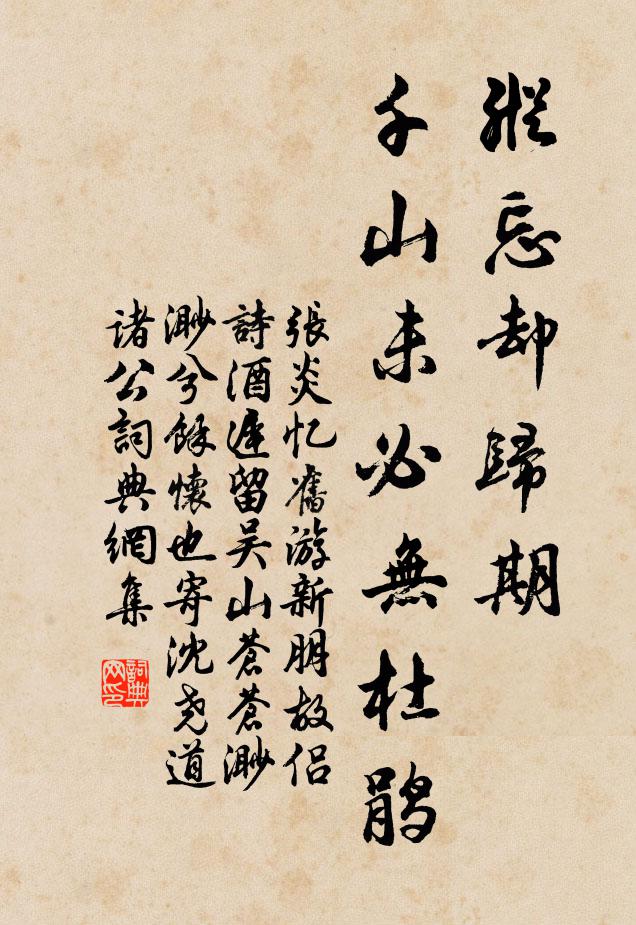 縱忘却歸期
千山未必無杜鹃
張炎忆舊游新朋故侣
詩酒遲留吴山蒼蒼渺
渺兮餘懷也寄沈尧道
诸公詞典網集
詞典网印